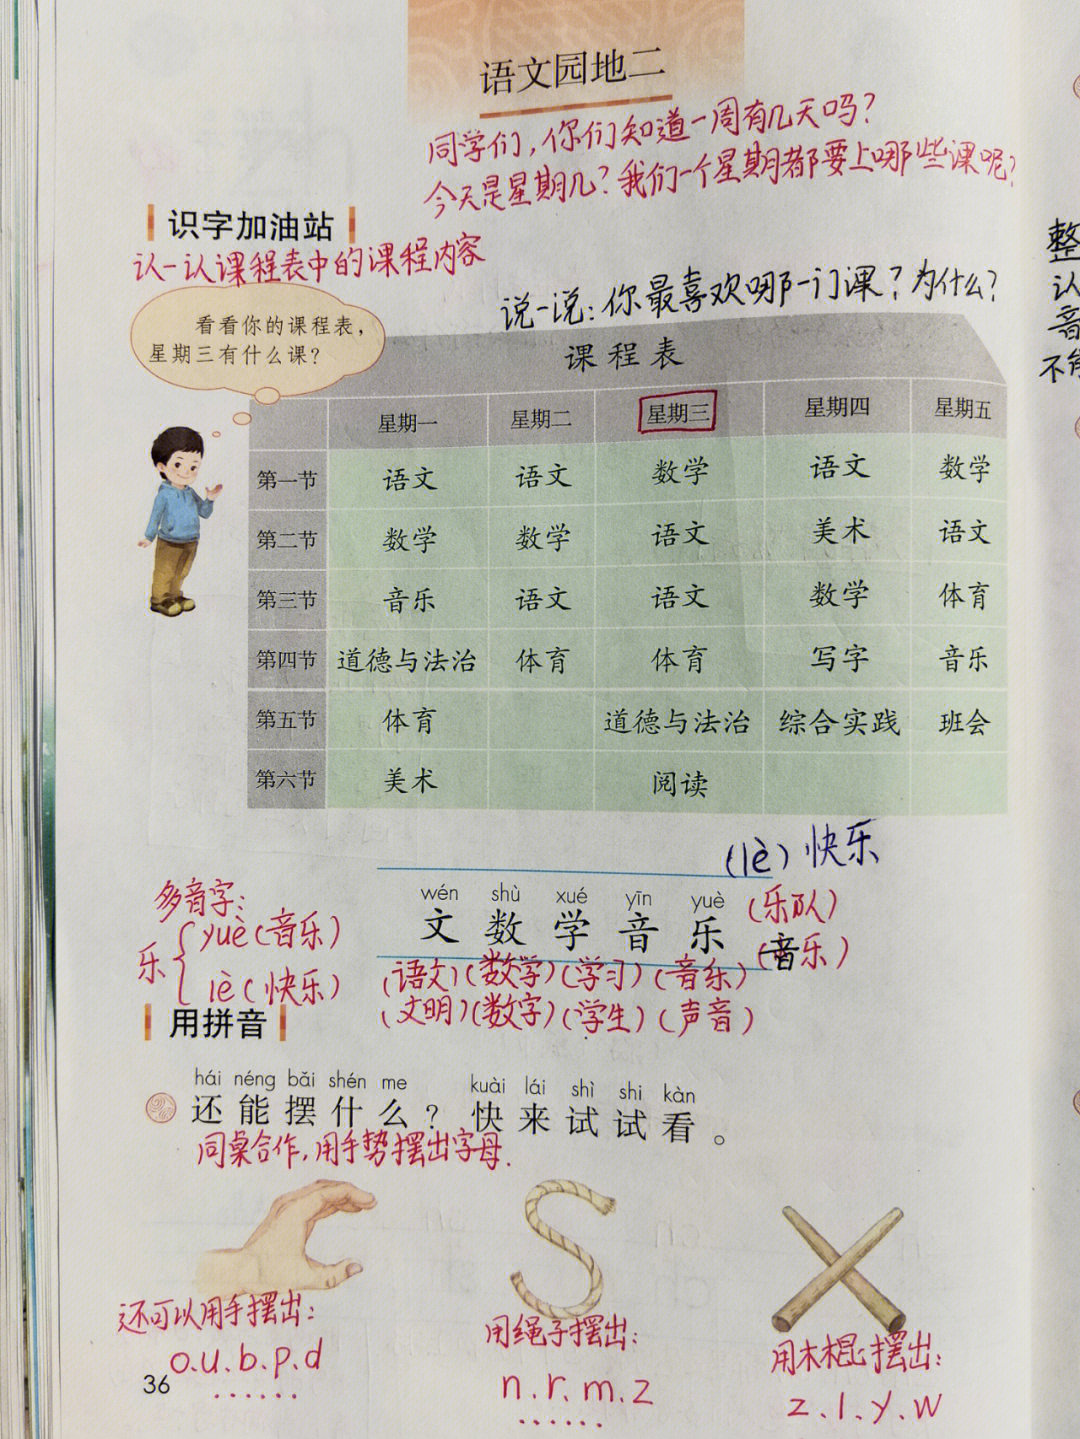 语文园地二
同学们，你们知道一周有几天吗？
今天是星期几？我们一个星期都要上哪些课呢？
识字加油站
认一认课程表中的课程内容
说一说：你最喜欢哪一门课？为什么？
看看你的课程表，
星期三有什么课？
课程表
星期一 星期二 星期三 星期四 星期五
第一节 语文 语文 数学 语文 数学
第二节 数学 数学 语文 美术 语文
第三节 音乐 语文 语文 数学 体育
第四节 道德与法治 体育 体育 写字 音乐
第五节 体育 道德与法治 综合实践 班会
第六节 美术 阅读
(lè) 快乐
wén shù xué yīn yuè
文 数 学 音 乐 (乐队)
(音乐)
(语文)(数学)(学习)(音乐)
(文明)(数字)(学生)(声音)
多音字：
乐 yuè(音乐)
lè(快乐)
用拼音
hái néng bǎi shén me kuài lái shì shi kàn
还能摆什么？快来试试看。
同桌合作，用手势摆出字母.
还可以用手摆出：
o.u.b.p.d
......
用绳子摆出：
n.r.m.z
......
用木棍摆出：
z.l.y.w
36
整
认
音
不能